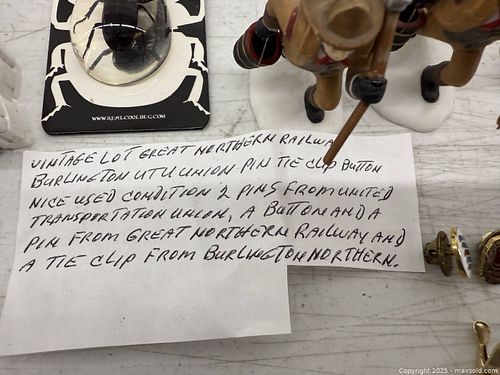 WWW.REALCOOLBUG.COM
VINTAGE LOT GREAT NORTHERN RAILWA
BURLINGTON UTU UNION PIN TIE CLIP BUTTON
NICE USED CONDITION 2 PINS FROM UNITED
TRANSPORTATION UNION, A BUTTON AND A
PIN FROM GREAT NORTHERN RAILWAY AND
A TIE CLIP FROM BURLINGTON NORTHERN.
Copyright 2025 - maxsold.com